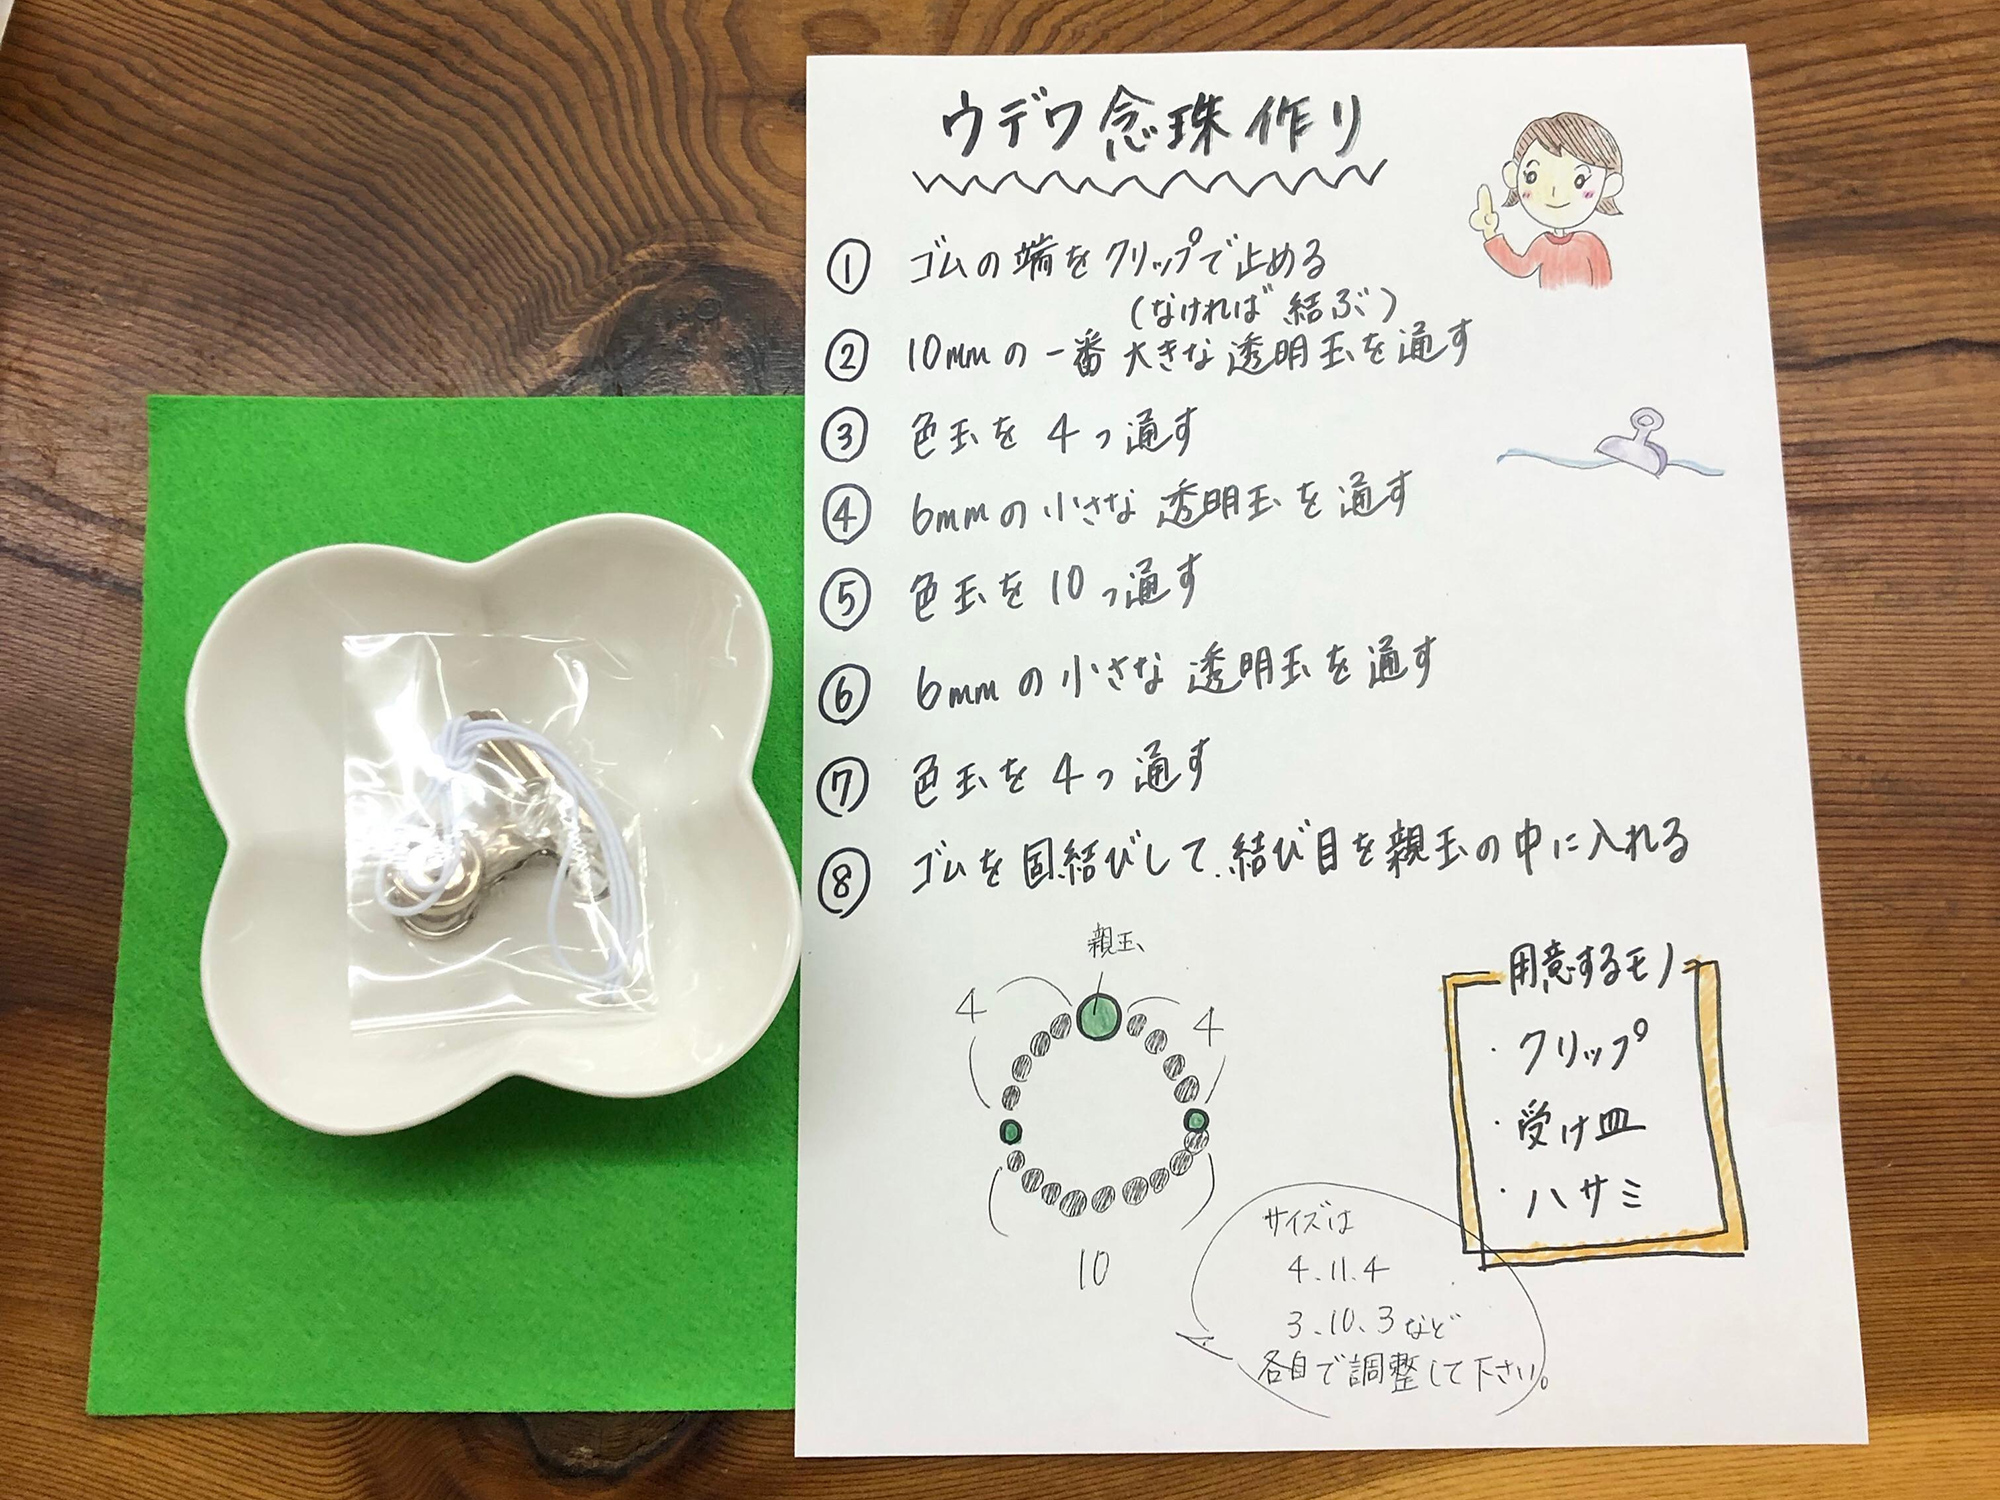 ウデワ念珠作り
① ゴムの端をクリップで止める
(なければ結ぶ)
② 10mmの一番大きな透明玉を通す
③ 色玉を4つ通す
④ 6mmの小さな透明玉を通す
⑤ 色玉を10っ通す
⑥ 6mmの小さな透明玉を通す
⑦ 色玉を4つ通す
⑧ ゴムを固結びして、結び目を親玉の中に入れる
親玉
4
4
10
サイズは
4、11、4
3、10、3など
各自で調整して下さい。
用意するモノ
・クリップ
・受け皿
・ハサミ